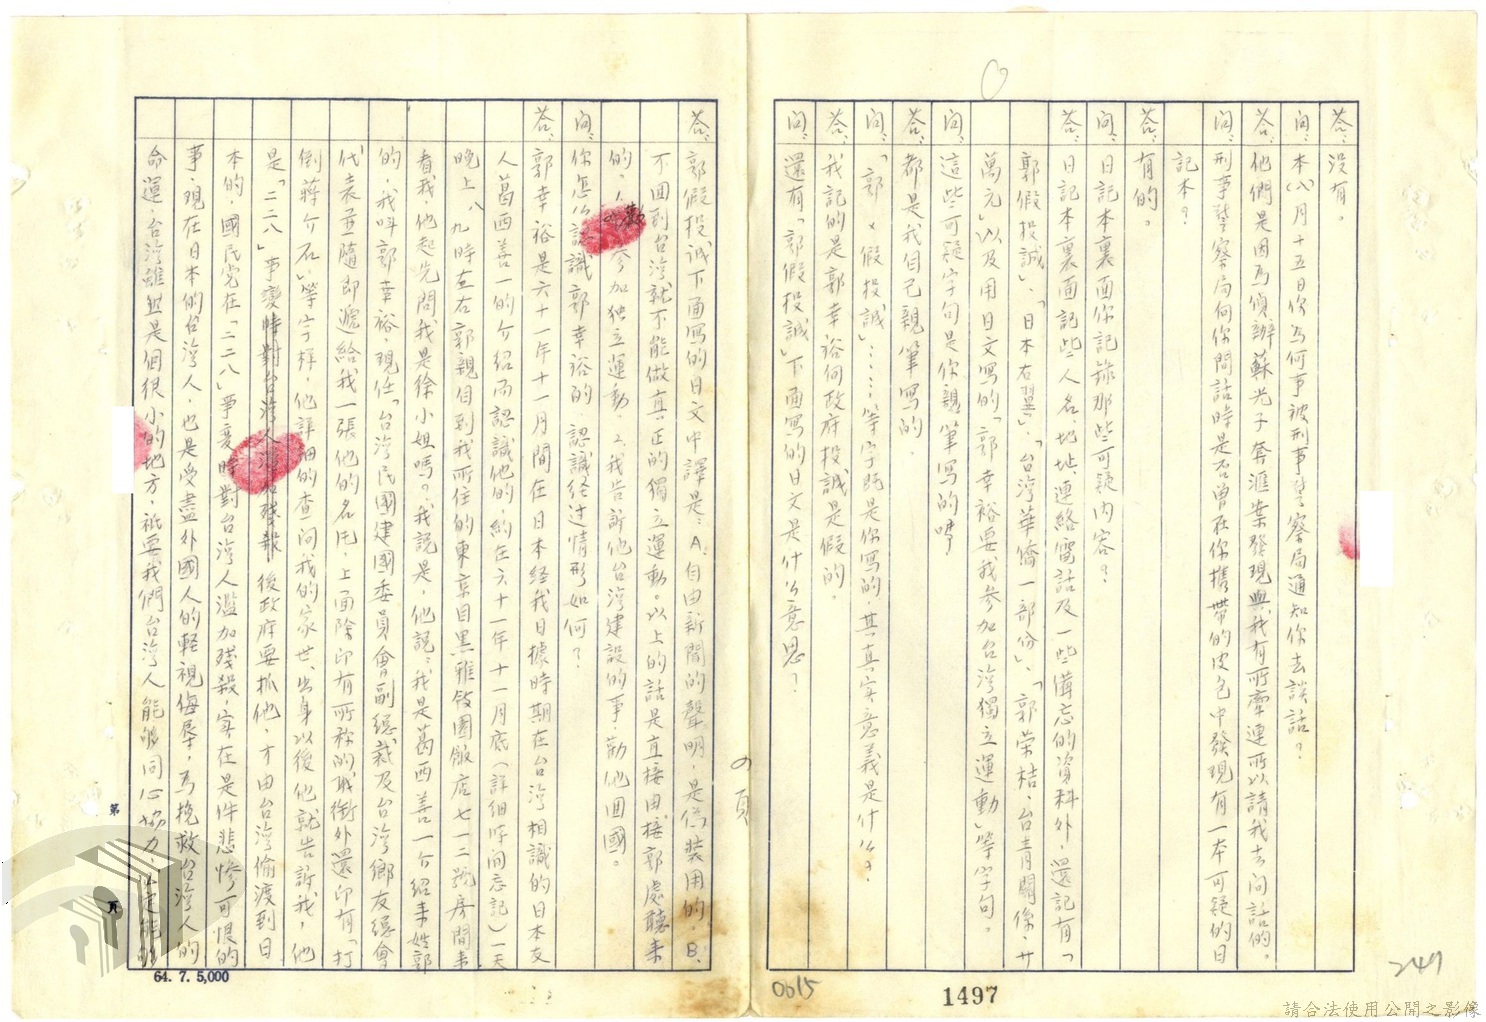 答：没有。
問：本(八)月十五日你為何事被刑事警察局通知你去談話？
答：他們是因為偵辦蘇光子奔滙業發現與我有所牽連所以請我去问話的。
問：刑事警察局向你問話時是否曾在你携帶的皮包中發現有一本可疑的日
記本？
答：有的。
问：日記本裏面你記錄那些可疑内容？
答：日記本裏面記些人名、地址、連絡電話及一些備忘的資料外，還記有「
郭假投誠」、「日本右翼」、「台湾華僑一部份」、「郭荣桔、台青關係、廿
萬元」以及用日文写的「郭幸裕要我参加台湾獨立運動」等字句。
问：這些可疑字句是你親筆写的嗎
答：都是我自己親筆寫的．
问：「郭×假投誠」……等字既是你寫的，其真实意義是什么？
答：我記的是郭幸裕向政府投誠是假的．
问：還有「郭假投誠」下面寫的日文是什么意思？
答：郭假投诚下面写的日文中譯是：A.自由新聞的聲明，是偽装用的．B.
不囬到台湾就不能做真正的獨立運動。以上的話是直接由郭處聽来
的。1.勸参加独立運動．2.我告訴他台湾建設的事勸他囬國。
问：你怎么認識郭幸裕的 認識经过情形如何？
答：郭幸裕是六十一年十一月間在日本经我日據時期在台湾相識的日本友
人葛西善一的介紹而認識他的，約在六十一年十一月底（詳细時间忘記）一天
晚上八、九時左右郭親自到我所住的東京目黒雅敘園飯店七一二號房間来
看我，他起先問我是徐小姐嗎？我説是，他説：我是葛西善一介紹来姓郭
的，我叫郭幸裕，現任「台湾民國建國委員會副總裁及台湾鄉友總會
代表並隨即遞給我一張他的名片，上面除印有所称的职衔外還印有「打
倒蔣介石」等字样，他詳细的查问我的家世、出身以後他就告訴我，他
是「二二八」事變時對台湾人濫加殘殺後政府要抓他，才由台湾偷渡到日
本的，國民党在「二二八」事变時對台湾人濫加残殺，实在是件悲惨可恨的
事，現在日本的台湾人，也是受盡外國人的輕視侮辱，為挽救台湾人的
命運，台湾雖然是個很小的地方，祇要我們台湾人能够同心協力，一定能的
の頁
第
頁
64. 7. 5,000
0615
1497
247
請合法使用公開之影像